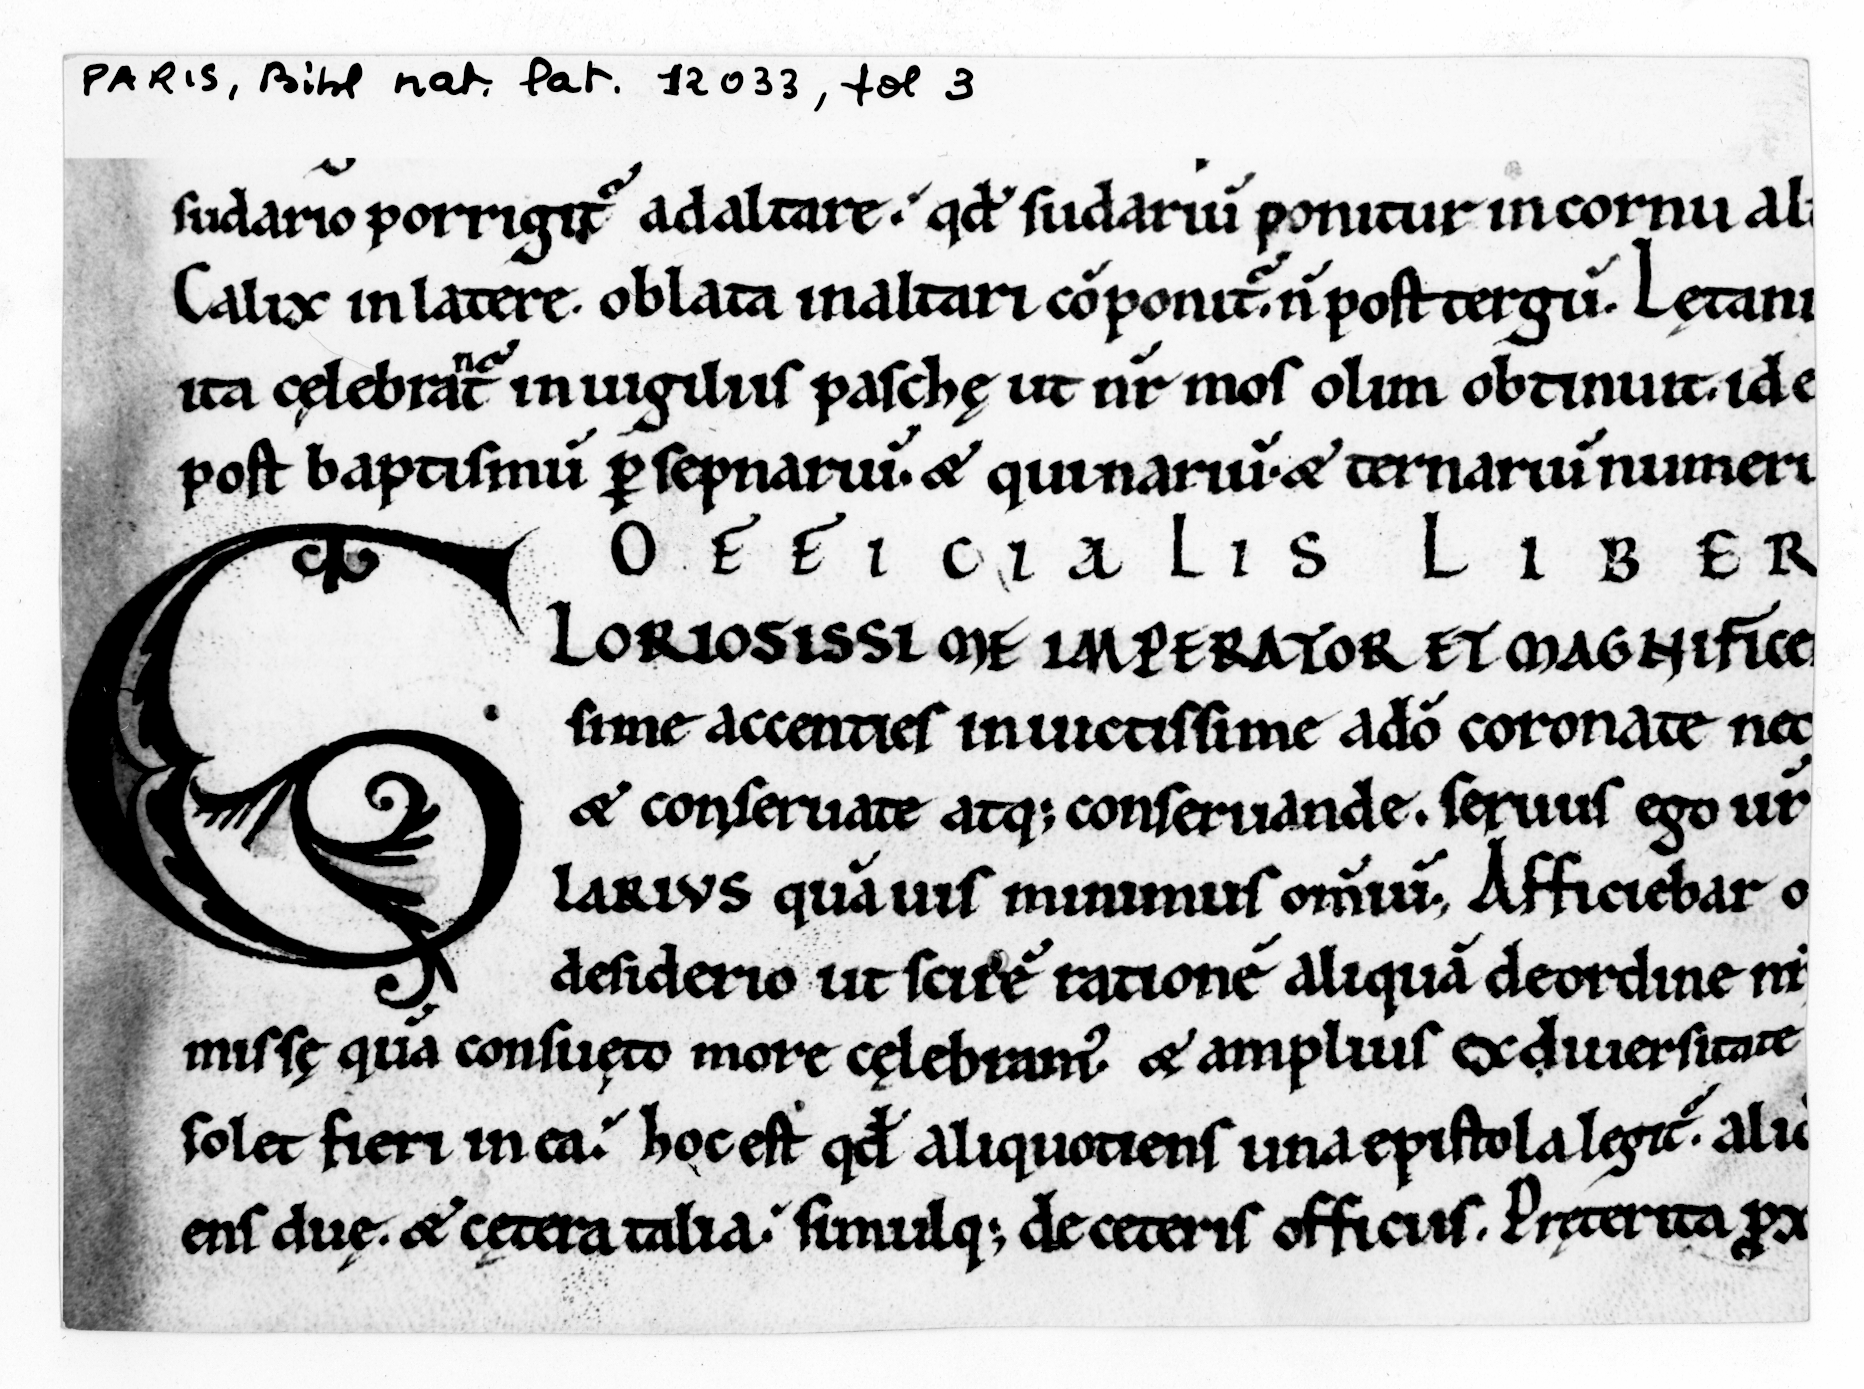 PARIS, Bibl nat. lat. 12033, fol 3
sudario porrigit᷑ ad altare. qđ sudariū ponitur in cornu alt
Calix in latere. oblata in altari cōponit᷑. n̄ post tergū. Lętani
ita cęlebrant᷑ in uigiliis paschę ut nr̄ mos olim obtinuit. ide
post baptismū ꝑ sepnariū. & quinariū. & ternariū numeri
OFFICIALIS LIBER
GLORIOSISSIME IMPERATOR ET MAGNIFICE
sime accenties inuictissime a dō coronate nec
& conseruate atq; conseruande. seruus ego ur̄
LARIVS quāuis minimus om̄iū. Afficiebar o
desiderio ut scirē rationē aliquā de ordine nr̄
missę quā consuęto more cęlebram᷒ & amplius ex diuersitate
solet fieri in ea. hoc est qđ aliquotiens una epistola legit᷑. aliq
ens duę. & cętera talia. simulq; de ceteris officiis. Pręterita ꝓx